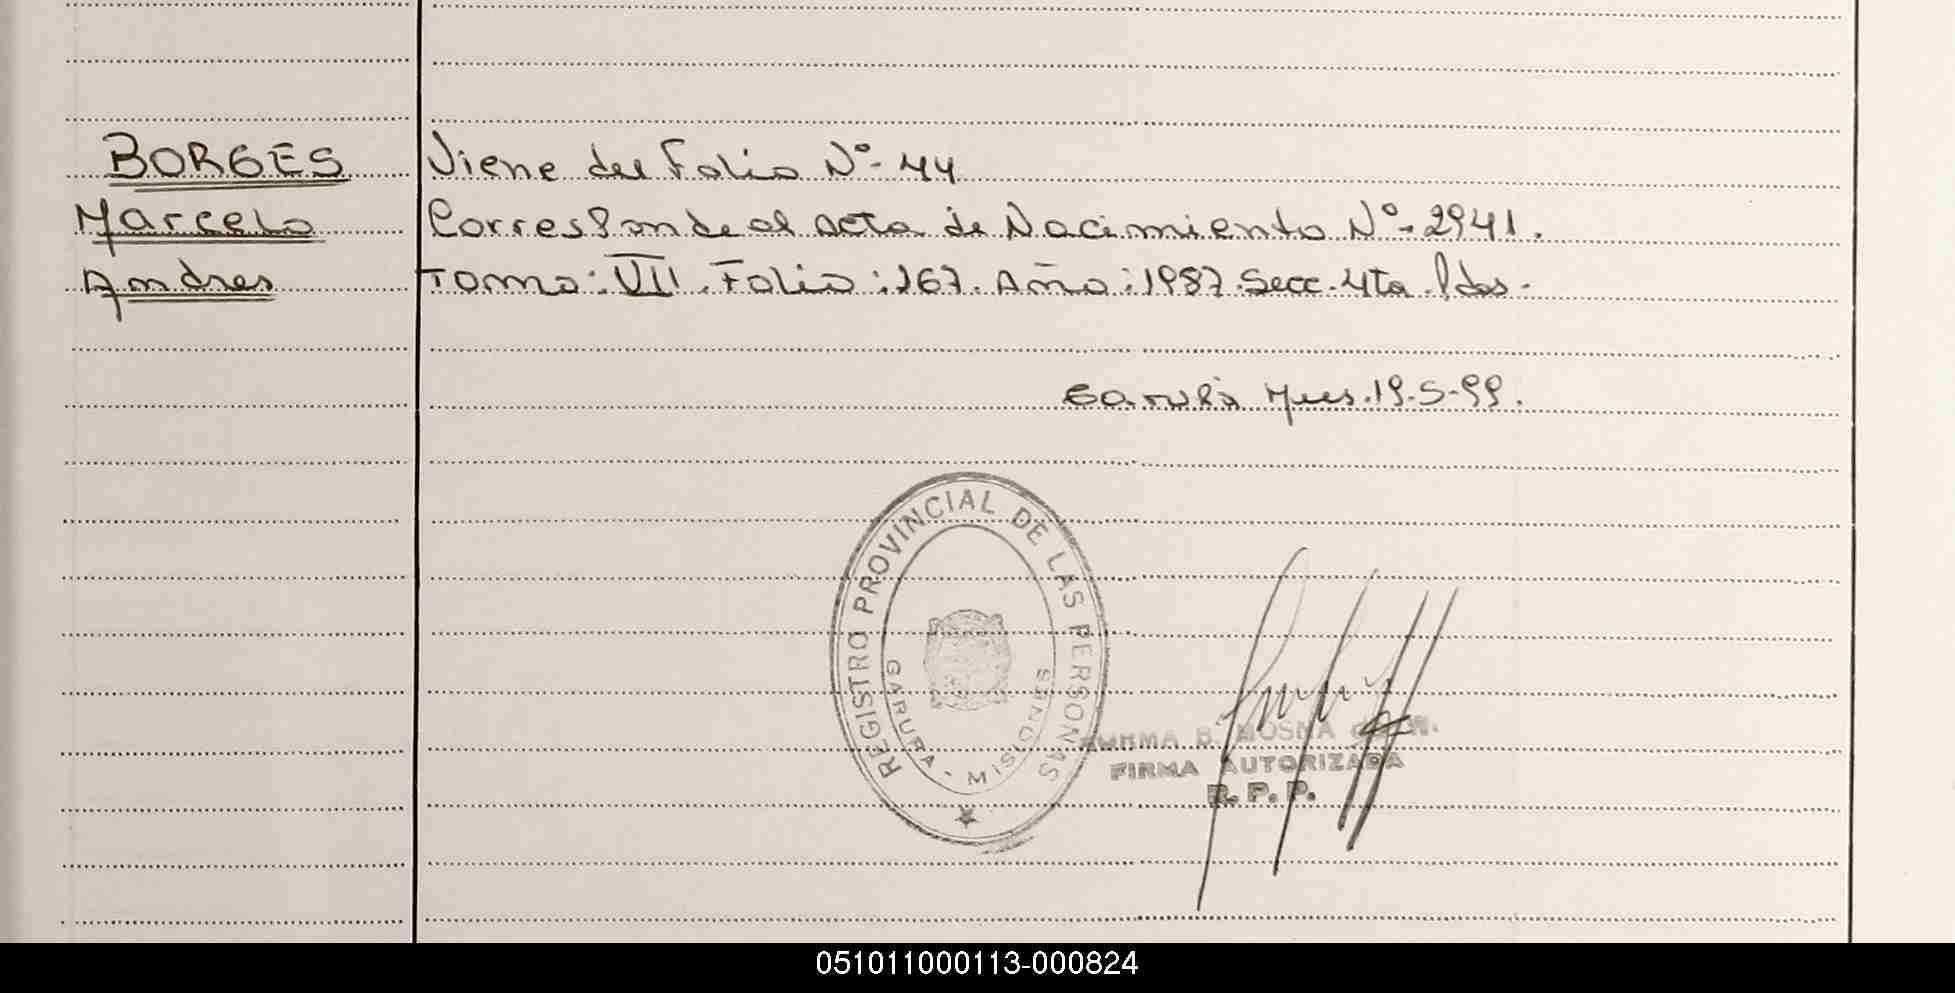 BORGES Viene del Folio Nº- 44
Marcelo Corresponde al acta de Nacimiento Nº- 2941.
Andres Tomo: VII. Folio: 167. Año: 1987. Secc. 4ta. Pdas.
Garupá Mnes. 19-5-99.
REGISTRO PROVINCIAL DE LAS PERSONAS
GARUPA - MISIONES
B. MOSNA
FIRMA AUTORIZADA
R. P. P.
051011000113-000824